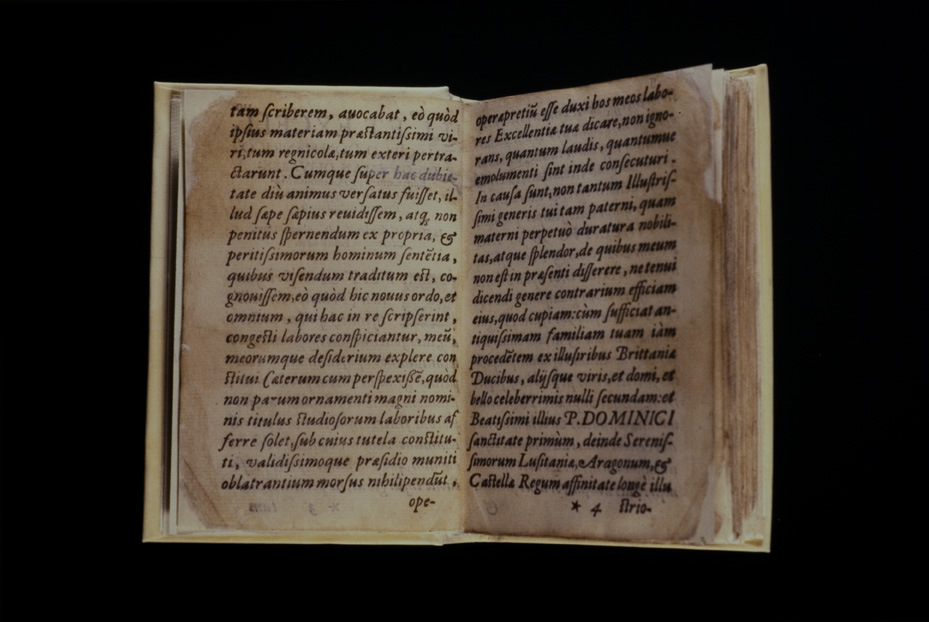 tam ſcriberem, auocabat, eò quòd
ipſius materiam præſtantiſsimi vi-
ri, tum regnicolæ, tum exteri pertra-
ctarunt. Cumque ſuper hac dubie-
tate diù animus verſatus fuiſſet, il-
lud ſæpe ſæpius reuidiſſem, atq; non
penitus ſpernendum ex propria, &
peritiſsimorum hominum ſentētia,
quibus viſendum traditum eſt, co-
gnouiſſem, eò quòd hic nouus ordo, et
omnium, qui hac in re ſcripſerint,
congeſti labores conſpiciantur, meū,
meorumque deſiderium explere con
ſtitui Cæterum cum perſpexiſsē, quòd
non paruum ornamenti magni nomi-
nis titulus ſtudioſorum laboribus af
ferre ſolet, ſub cuius tutela conſtitu-
ti, validiſsimoque præſidio muniti
oblatrantium morſus nihilipendūt,
ope-
operæpretiũ eſſe duxi hos meos labo-
res Excellentiæ tuæ dicare, non igno-
rans, quantum laudis, quantumue
emolumenti ſint inde conſecuturi.
In cauſa ſunt, non tantum Illuſtriſ-
ſimi generis tui tam paterni, quam
materni perpetuò duratura nobili-
tas, atque ſplendor, de quibus meum
non eſt in præſenti diſſerere, ne tenui
dicendi genere contrarium efficiam
eius, quod cupiam: cùm ſufficiat an-
tiquiſsimam familiam tuam iàm
procedētem ex illuſtribus Brittaniæ
Ducibus, alijſque viris, et domi, et
bello celeberrimis nulli ſecundam: et
Beatiſsimi illius P. DOMINICI
ſanctitate primùm, deinde Sereniſ-
ſimorum Luſitaniæ, Aragonum, &
Caſtellæ Regum affinitate longè illu
* 4 ſtrio-